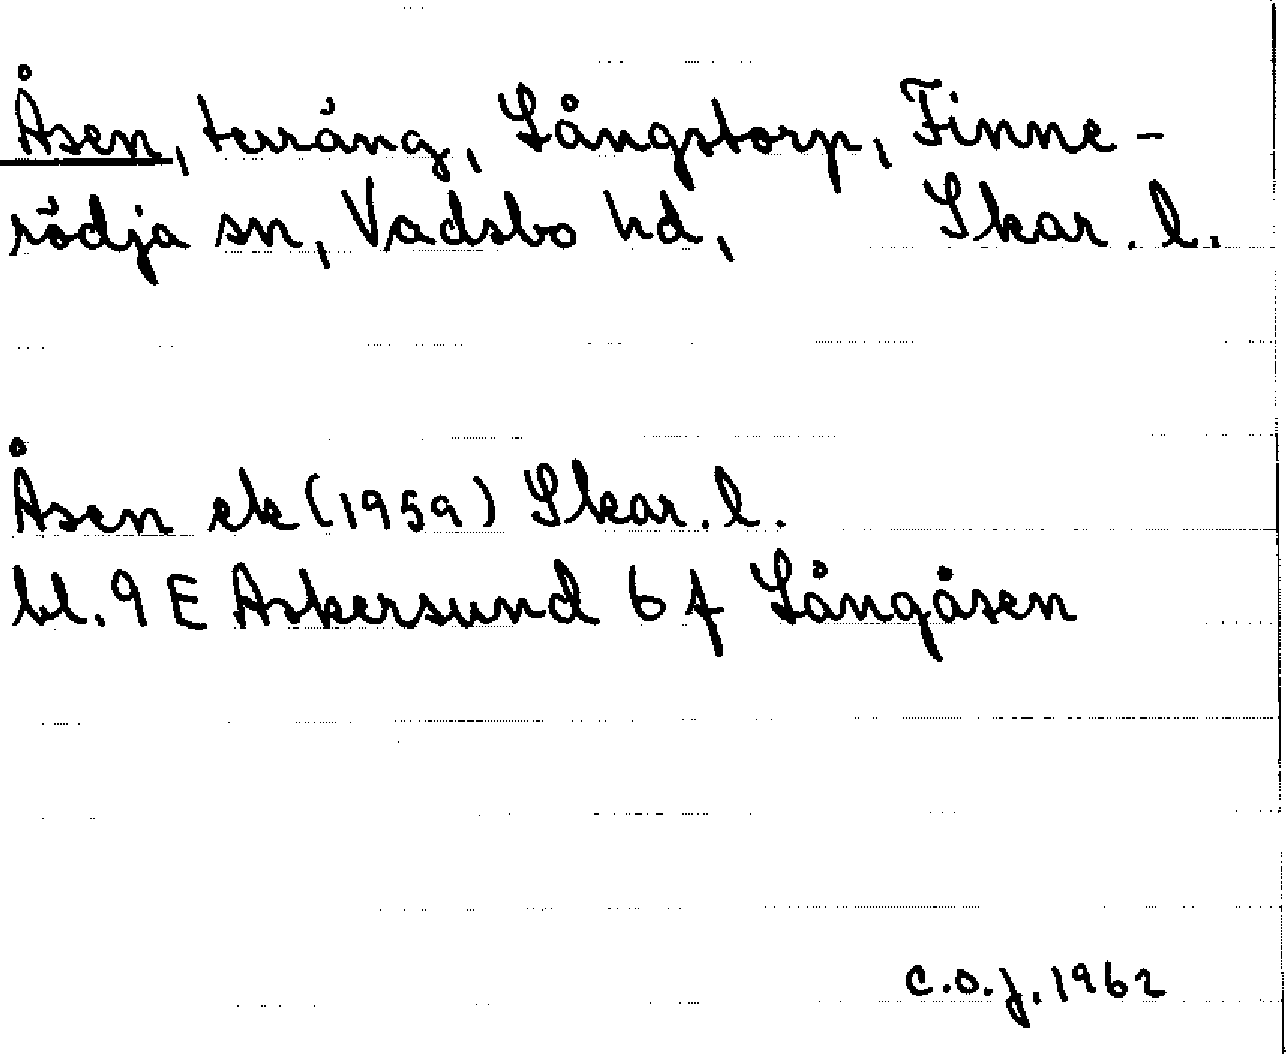 Åsen, terräng, Långstorp, Finne-
rödja sn, Vadsbo hd, Skar. l.
Åsen ek (1959) Skar. l.
bl. 9 E Askersund 6 f Långåsen
C.O.J. 1962